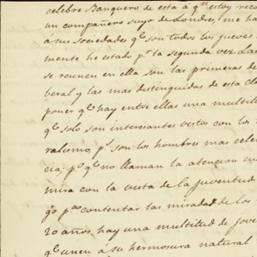 celebre Banquero de esta á qn estoy reco
un compañero suyo de Londres, me ha
á sus sociedades qe son todos los jueves
mente he estado pr la segunda vez. Las
se reunen en ella son las primeras de
beral y las mas distinguidas de esta c
poner qe hay entre ellas una multitu
qe solo son interesantes vestos con los
ralismo, ps. son los hombres mas cele
cia, ps qe no llaman la atencion cu
mira con la vista de la juventud
go pa contentar las miradas de los
20 años, hay una multitud de jove
qe unen á su hermosura natural